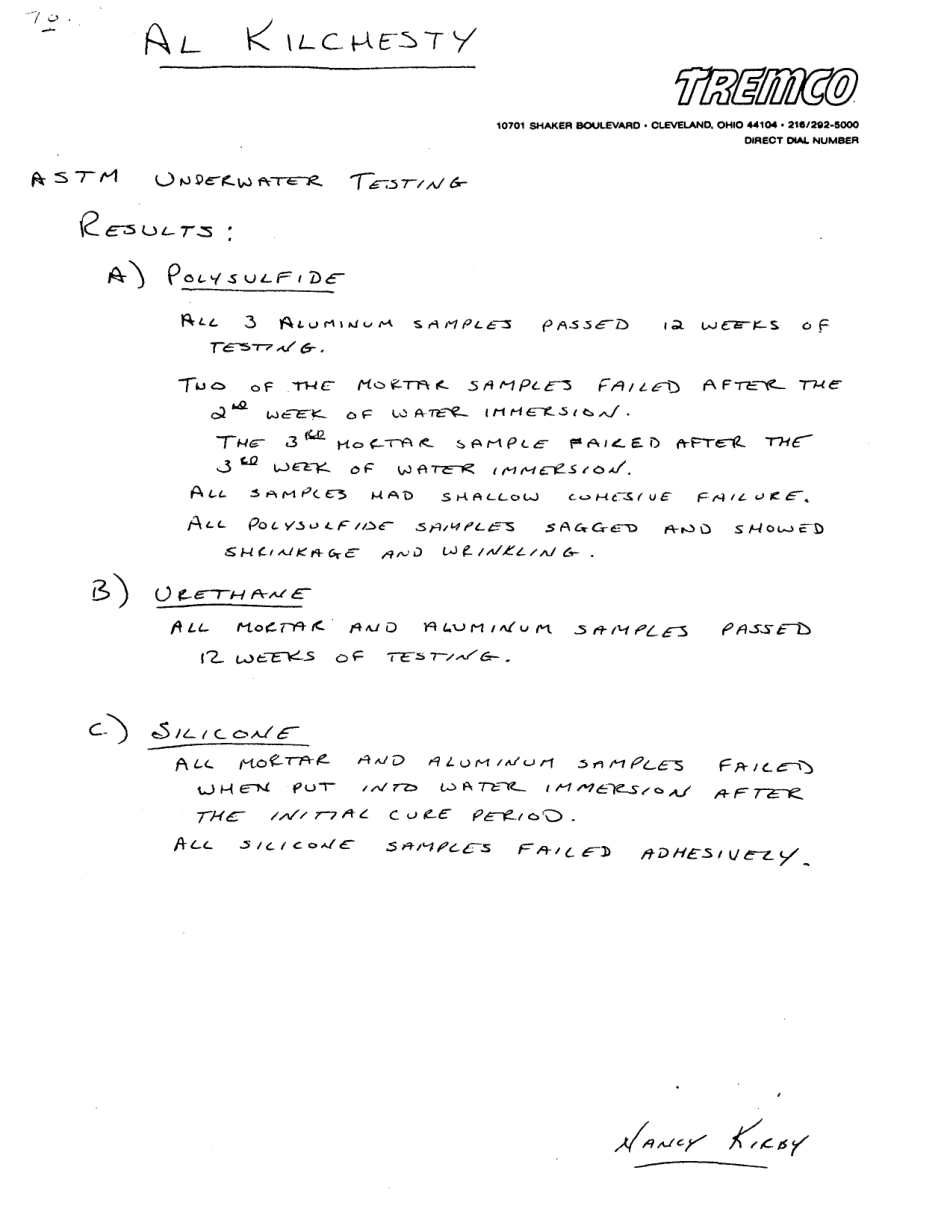 To:
AL KILCHESTY
TREMCO
10701 SHAKER BOULEVARD • CLEVELAND, OHIO 44104 • 216/292-5000
DIRECT DIAL NUMBER
ASTM UNDERWATER TESTING
RESULTS:
A) POLYSULFIDE
ALL 3 ALUMINUM SAMPLES PASSED 12 WEEKS OF
TESTING.
TWO OF THE MORTAR SAMPLES FAILED AFTER THE
2ND WEEK OF WATER IMMERSION.
THE 3RD MORTAR SAMPLE FAILED AFTER THE
3RD WEEK OF WATER IMMERSION.
ALL SAMPLES HAD SHALLOW COHESIVE FAILURE.
ALL POLYSULFIDE SAMPLES SAGGED AND SHOWED
SHRINKAGE AND WRINKLING.
B) URETHANE
ALL MORTAR AND ALUMINUM SAMPLES PASSED
12 WEEKS OF TESTING.
C) SILICONE
ALL MORTAR AND ALUMINUM SAMPLES FAILED
WHEN PUT INTO WATER IMMERSION AFTER
THE INITIAL CURE PERIOD.
ALL SILICONE SAMPLES FAILED ADHESIVELY.
NANCY KIRBY